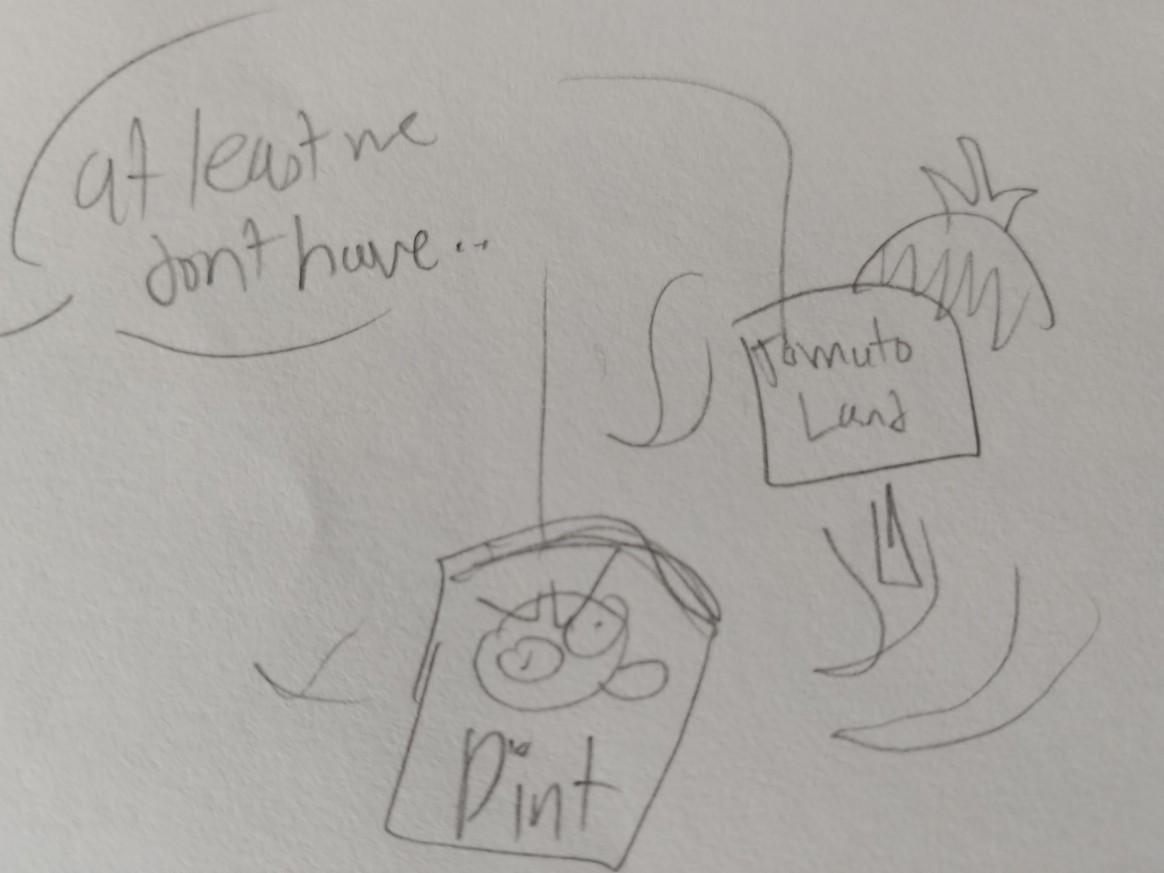 at least we
dont have..
Tomuto
Land
Dint